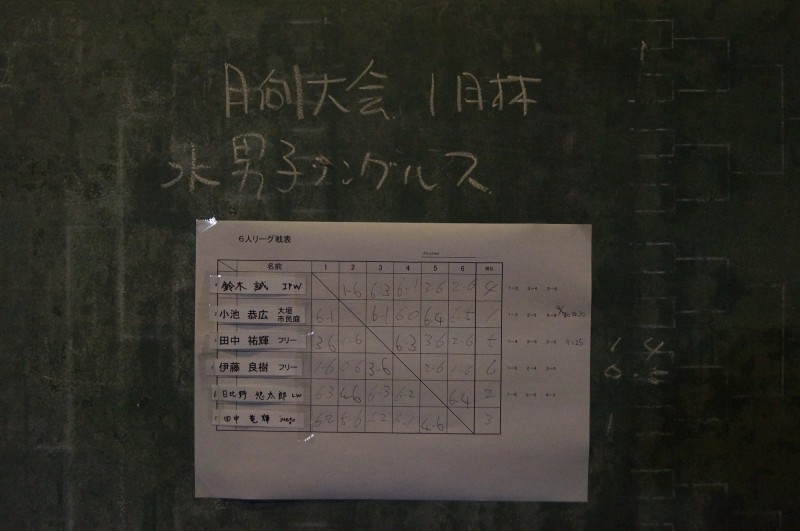 月例大会 1月杯
水 男子シングルス
6人リーグ戦表
名前 1 2 3 4 5 6 順位
鈴木 誠 IPW 1-6 6-3 6-1 3-6 2-6 4
小池 恭広 大垣市民庭 6-1 6-1 6-0 6-4 6-5 1
田中 祐輝 フリー 3-6 1-6 6-3 3-6 2-6 5
伊藤 良樹 フリー 1-6 0-6 3-6 2-6 1-6 6
日比野 悠太郎 LW 6-3 4-6 6-3 6-2 6-4 2
田中 竜輝 6-2 5-6 6-2 6-1 4-6 3